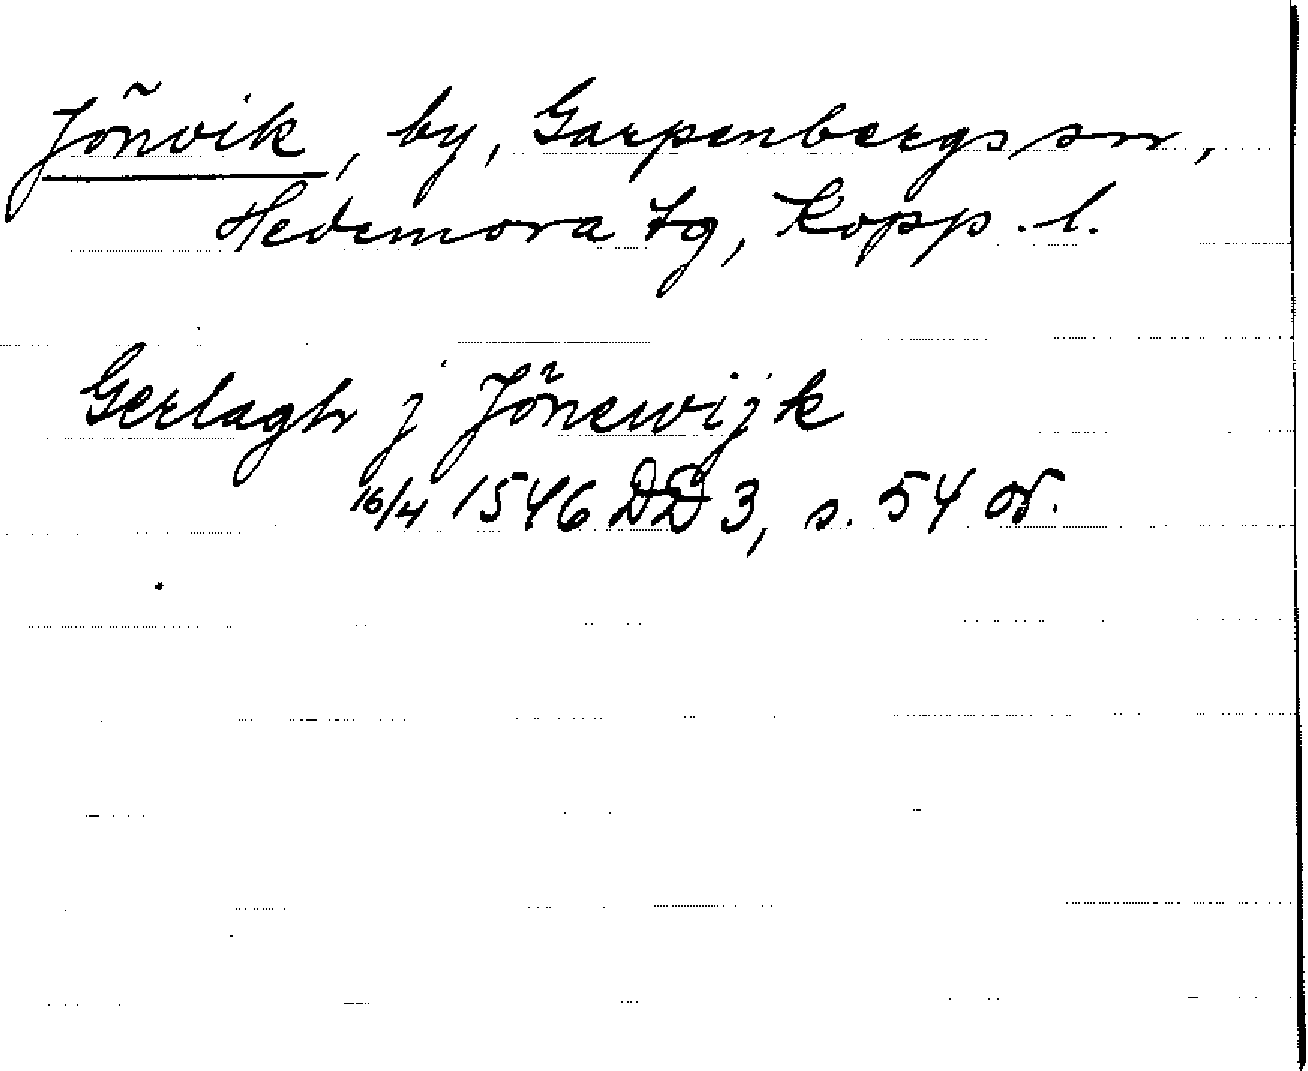 Jönvik, by, Garpenbergs sn,
Hedemora tg, Kopp. l.
Gerlagh j Jönewijk
16/4 1546 DD 3, s. 54 or.